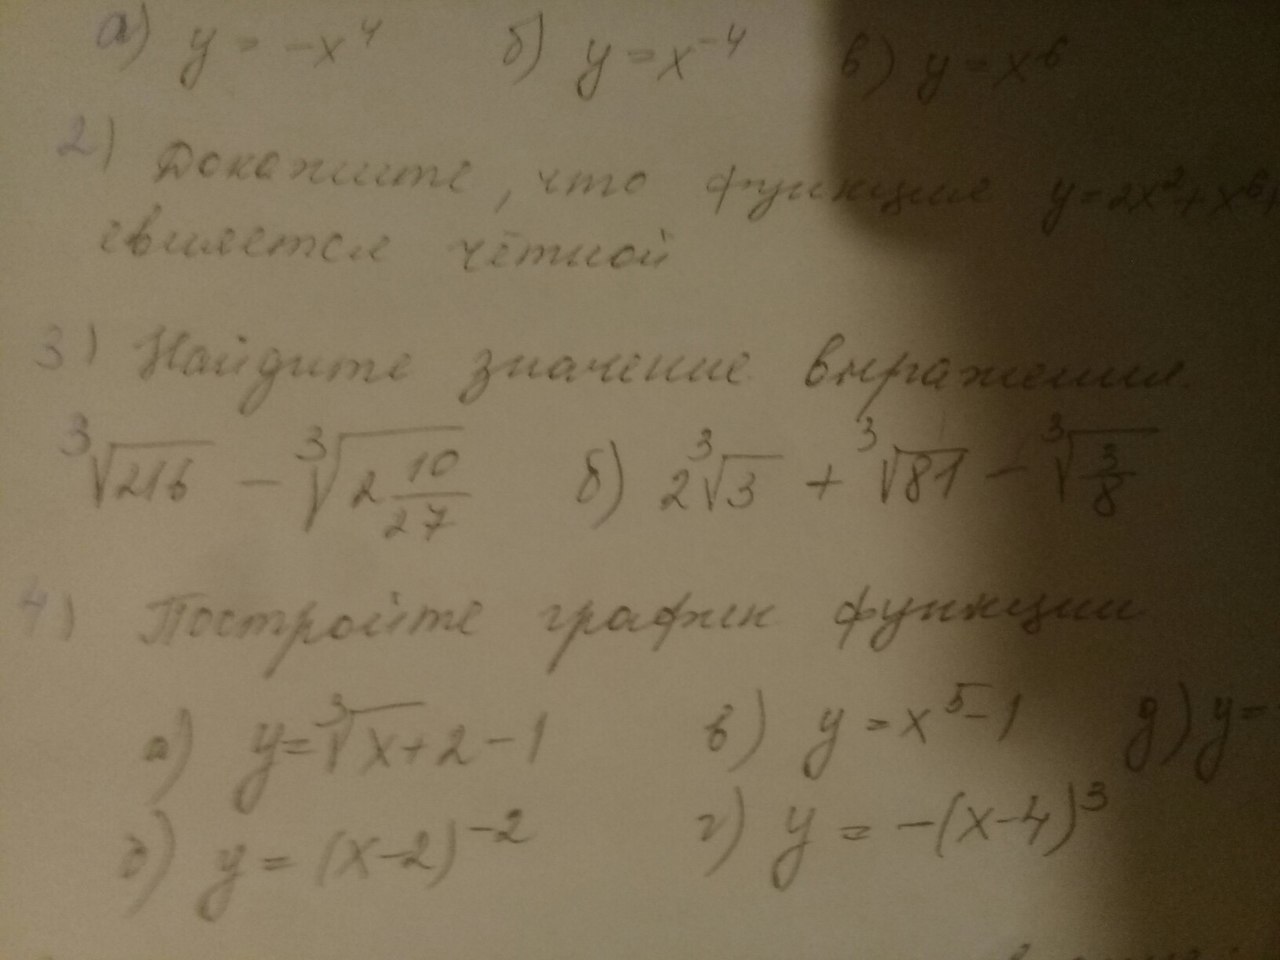 а) y = -x⁴ б) y = x⁻⁴ в) y = x⁶
2) Докажите, что функция y=2x²+x⁶+
является чётной
3) Найдите значение выражения.
∛216 - ∛(2 10/27) б) 2∛3 + ∛81 - ∛(3/8)
4) Постройте график функции
а) y=∛x+2 - 1 в) y = x⁵-1 д) y=
б) y = (x-2)⁻² г) y = -(x-4)³